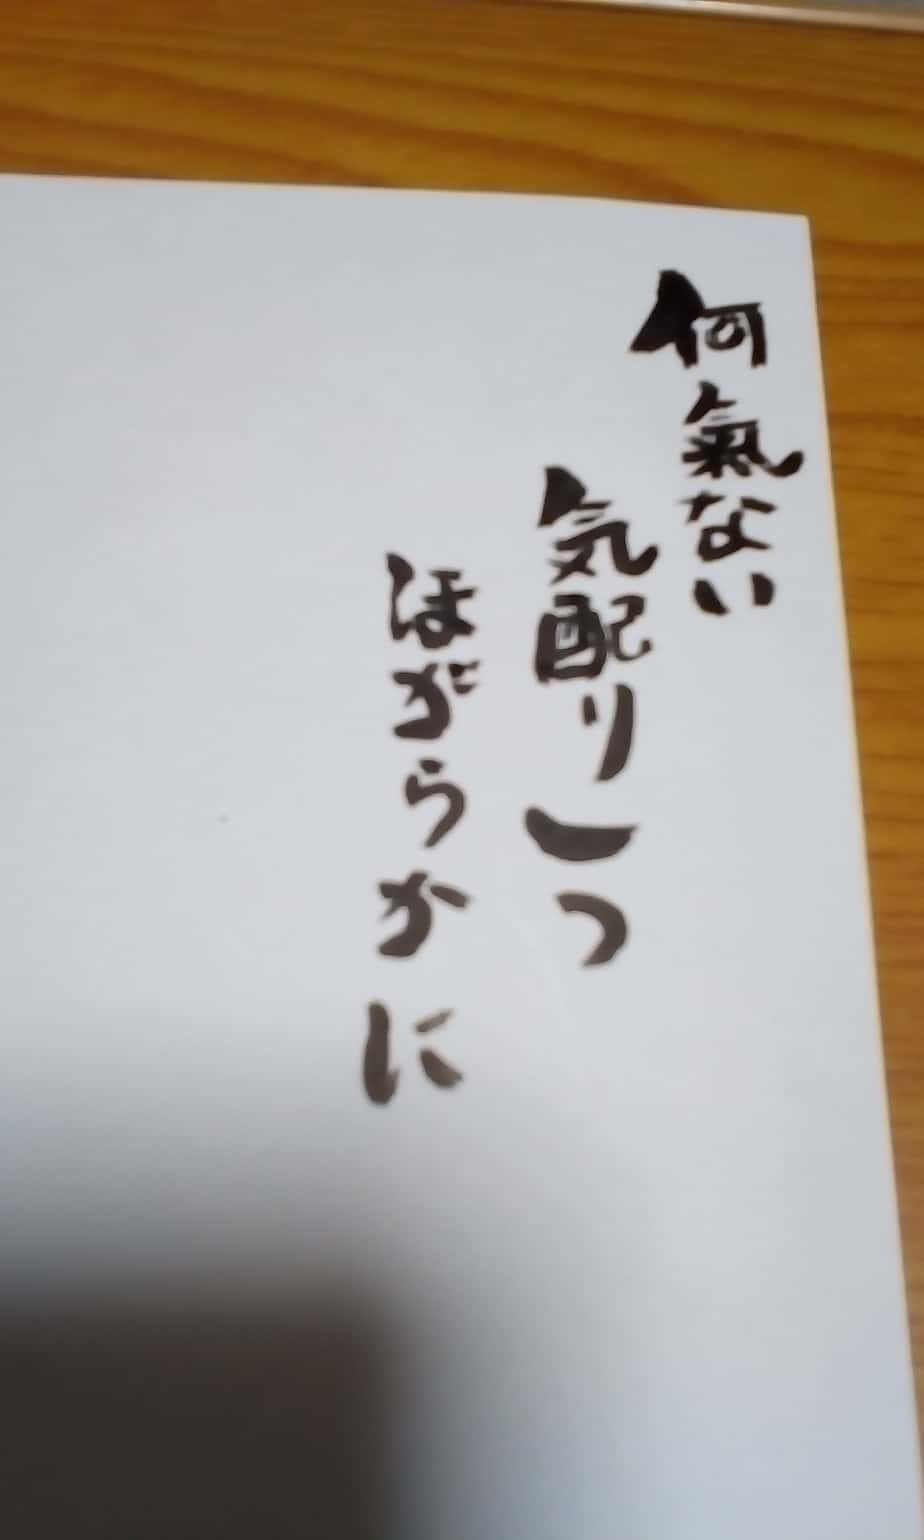 何氣ない
気配り一つ
ほがらかに